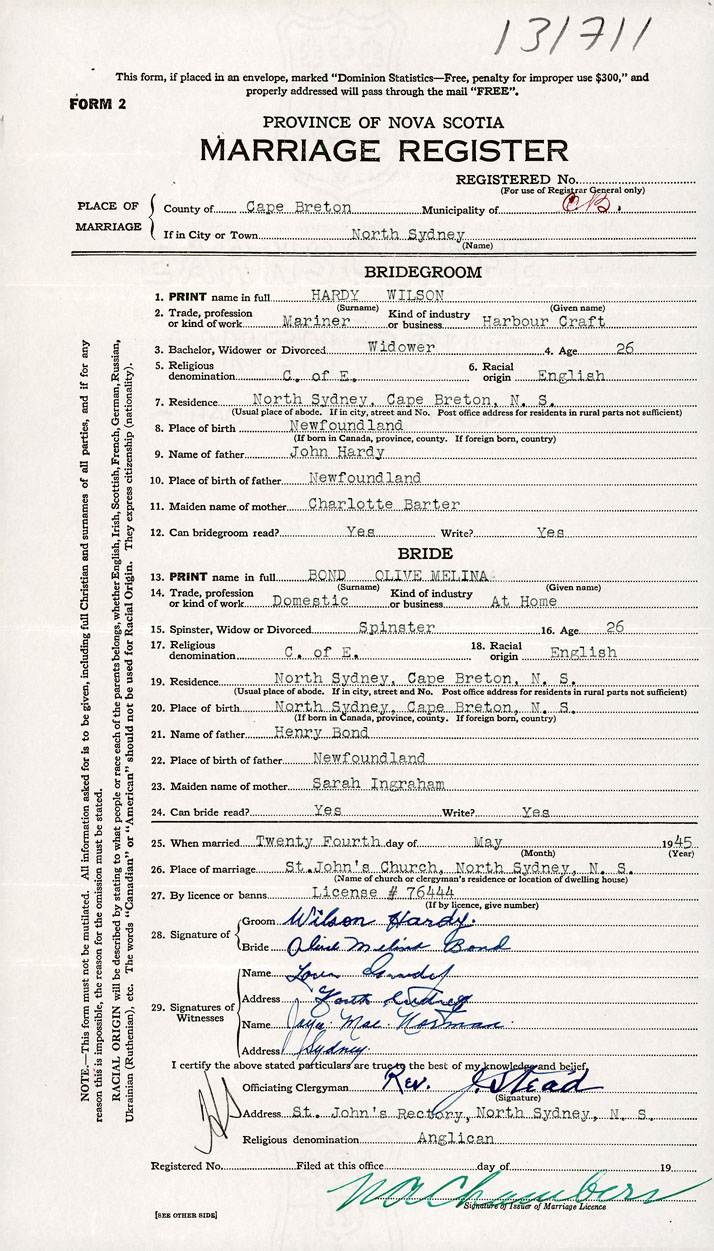 131711
This form, if placed in an envelope, marked "Dominion Statistics—Free, penalty for improper use $300," and
properly addressed will pass through the mail "FREE".
FORM 2
PROVINCE OF NOVA SCOTIA
MARRIAGE REGISTER
REGISTERED No.
(For use of Registrar General only)
PLACE OF MARRIAGE
County of Cape Breton Municipality of C.B.
If in City or Town North Sydney
(Name)
BRIDEGROOM
1. PRINT name in full HARDY WILSON
(Surname) (Given name)
2. Trade, profession or kind of work Mariner Kind of industry or business Harbour Craft
3. Bachelor, Widower or Divorced Widower 4. Age 26
5. Religious denomination C. of E. 6. Racial origin English
7. Residence North Sydney, Cape Breton, N. S.
(Usual place of abode. If in city, street and No. Post office address for residents in rural parts not sufficient)
8. Place of birth Newfoundland
(If born in Canada, province, county. If foreign born, country)
9. Name of father John Hardy
10. Place of birth of father Newfoundland
11. Maiden name of mother Charlotte Barter
12. Can bridegroom read? Yes Write? Yes
BRIDE
13. PRINT name in full BOND OLIVE MELINA
(Surname) (Given name)
14. Trade, profession or kind of work Domestic Kind of industry or business At Home
15. Spinster, Widow or Divorced Spinster 16. Age 26
17. Religious denomination C. of E. 18. Racial origin English
19. Residence North Sydney, Cape Breton, N. S.
(Usual place of abode. If in city, street and No. Post office address for residents in rural parts not sufficient)
20. Place of birth North Sydney, Cape Breton, N. S.
(If born in Canada, province, county. If foreign born, country)
21. Name of father Henry Bond
22. Place of birth of father Newfoundland
23. Maiden name of mother Sarah Ingraham
24. Can bride read? Yes Write? Yes
25. When married Twenty Fourth day of May 1945
(Month) (Year)
26. Place of marriage St.John's Church, North Sydney, N. S.
(Name of church or clergyman's residence or location of dwelling house)
27. By licence or banns License # 76444
(If by licence, give number)
28. Signature of
Groom Wilson Hardy.
Bride Olive Melina Bond
29. Signatures of Witnesses
Name
Address North Sydney
Name Mae Norman
Address Sydney.
I certify the above stated particulars are true to the best of my knowledge and belief,
Officiating Clergyman Rev. J. Stead
(Signature)
Address St. John's Rectory, North Sydney, N. S.
Religious denomination Anglican
Registered No. Filed at this office day of 19
Chambers
Signature of Issuer of Marriage Licence
[SEE OTHER SIDE]
NOTE.—This form must not be mutilated. All information asked for is to be given, including full Christian and surnames of all parties, and if for any
reason this is impossible, the reason for the omission must be stated.
RACIAL ORIGIN will be described by stating to what people or race each of the parents belongs, whether English, Irish, Scottish, French, German, Russian,
Ukrainian (Ruthenian), etc. The words "Canadian" or "American" should not be used for Racial Origin. They express citizenship (nationality).